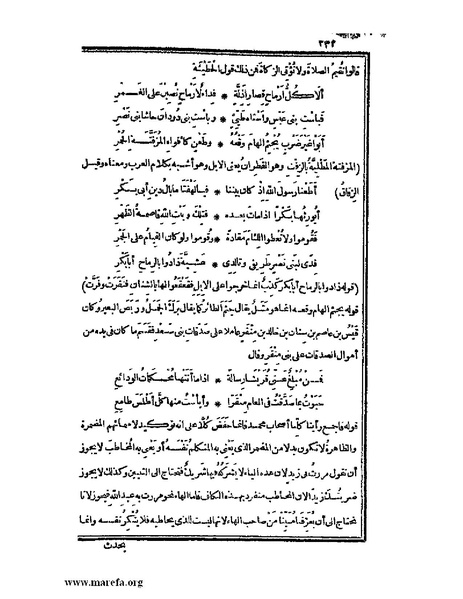 ٢٣٤
قالوا نقيم الصلاة ولا نؤتى الزكاة فمن ذلك قول الحطيئة
ألا كل أرماح قصار أذلة * فداء لأرماح نصبن على الغمر
فباست بنى عبس وأستاه طيئ * وباست بنى دودان حاشا بنى نصر
أبوا غير ضرب يجثم الهام وقعه * وطعن كأفواه المزفتة الحمر
(المزفتة المطلية بالزفت وهو القطران يعنى الابل وهو أشبه بكلام العرب ومعناه وقيل الزقاق)
أطعنا رسول الله اذ كان بيننا * فيالهفتا ما بال دين أبى بكر
أيورثها بكرا اذا مات بعده * فتلك وبيت الله قاصمة الظهر
فقوموا ولا تعطوا اللئام مقادة * وقوموا ولو كان القيام على الجمر
فدى لبنى نصر طريفى وتالدى * عشية ذادوا بالرماح أبا بكر
(قوله ذادوا بالرماح أبا بكر كذب انما خرجوا على الابل فقعقعوا لها بالشنان فنفرت وفرت)
قوله يجثم الهام وقعه انما هو مثل يقال جثم الطائر كما يقال برك الجمل وربض البعير وكان
قيس بن عاصم بن سنان بن خالد بن منقر عاملا على صدقات بنى سعد فقسم ما كان فى يده من
أموال الصدقات على بنى منقر وقال
فمن مبلغ عنى قريشا رسالة * اذا ما أتتها محكمات الودائع
حبوت بما صدقت فى العام منقرا * وأيأست منها كل أطلس طامع
قوله فاجمع وأبنا كلما أصحاب محمد فانما خفض كلا على أنه توكيد لاسمائهم المضمرة
والظاهرة لا تكون بدلا من المضمر الذى يعنى به المتكلم نفسه أو يعنى به المخاطب لا يجوز
أن تقول مررت بى زيد لان هذه الياء لا يشركه فيها شريك فتحتاج الى التبيين وكذلك لا يجوز
ضربتك زيد لان المخاطب منفرد بهذه الكاف فاما الهاء نحو مررت به عبد الله فيجوز لانا
نحتاج الى أن يعرفنا مبينا من صاحب الهاء لانها ليست للذى يخاطبه فلا ينكر نفسه وانما
يحدث
www.marefa.org